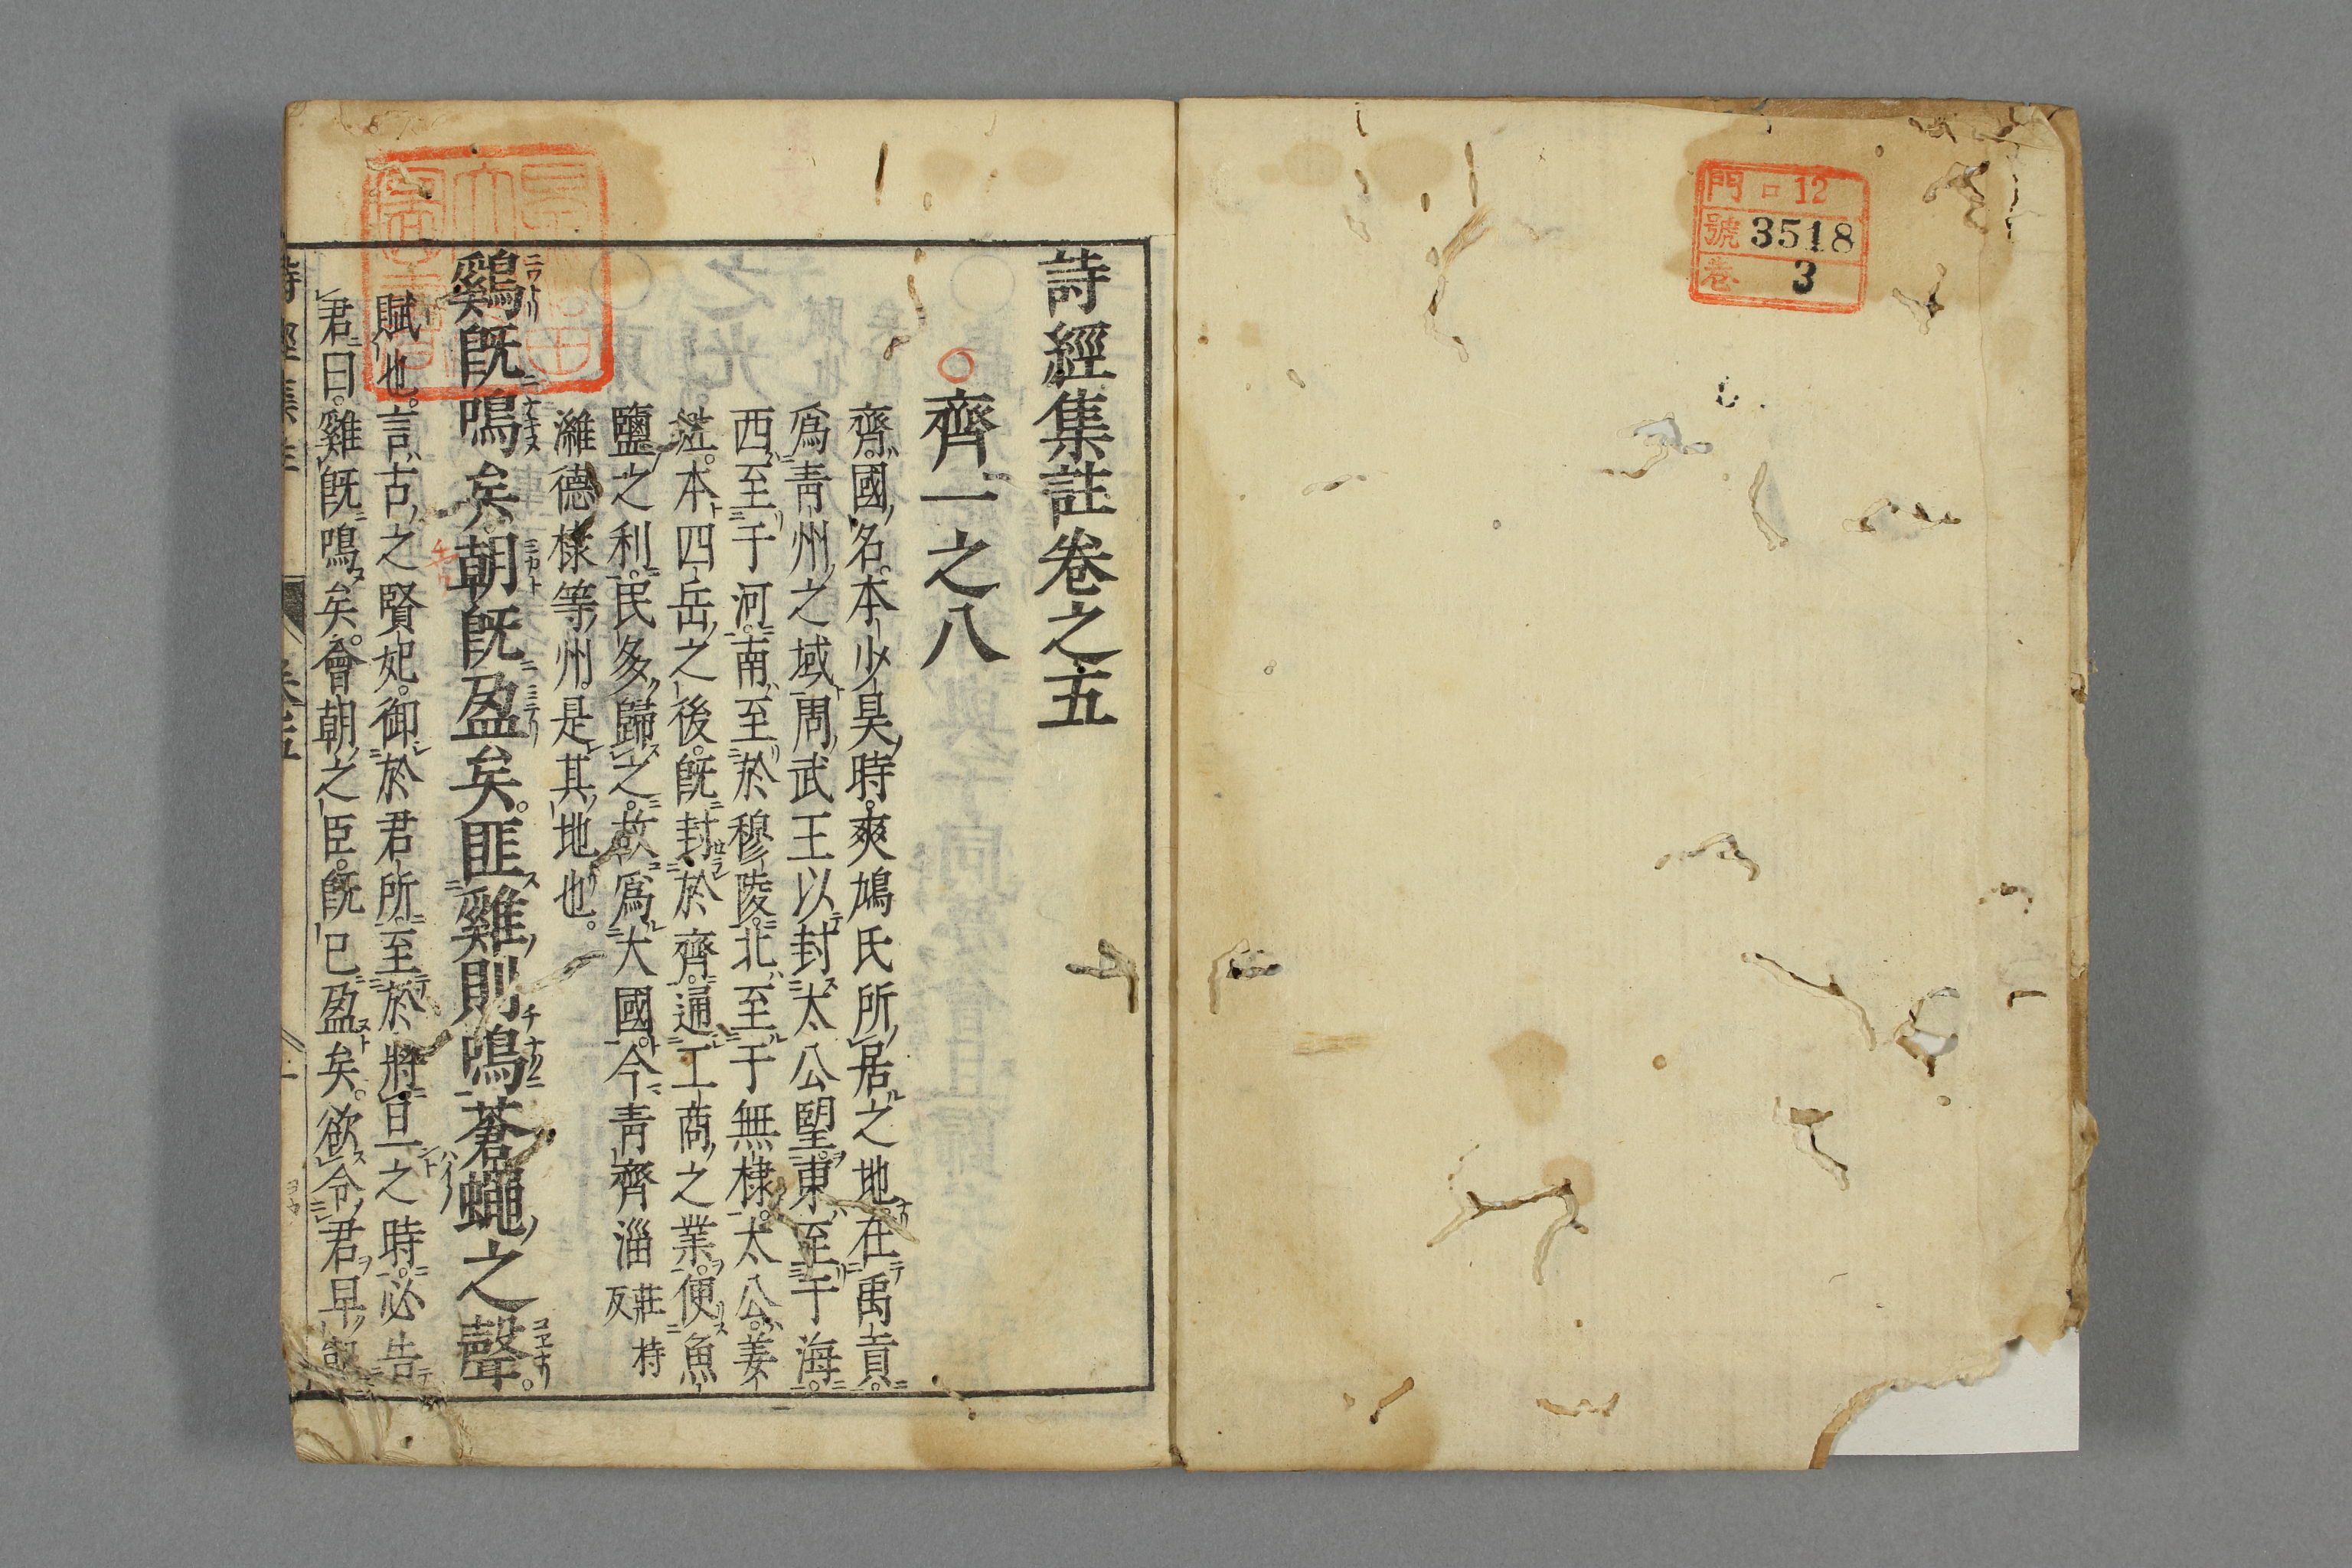 門 ロ 12
號 3518
卷 3
詩經集註卷之五
○齊一之八
齊國名本少昊時爽鳩氏所居之地在禹貢
爲青州之域周武王以封太公望東至于海
西至于河南至於穆陵北至于無棣太公姜
姓本四岳之後旣封於齊通工商之業便魚
鹽之利民多歸之故爲大國今青齊淄莊持反
濰德棣等州是其地也
鷄旣鳴矣朝旣盈矣匪雞則鳴蒼蠅之聲
賦也言古之賢妃御於君所至於將旦之時必告
君曰雞旣鳴矣會朝之臣旣已盈矣欲令君早